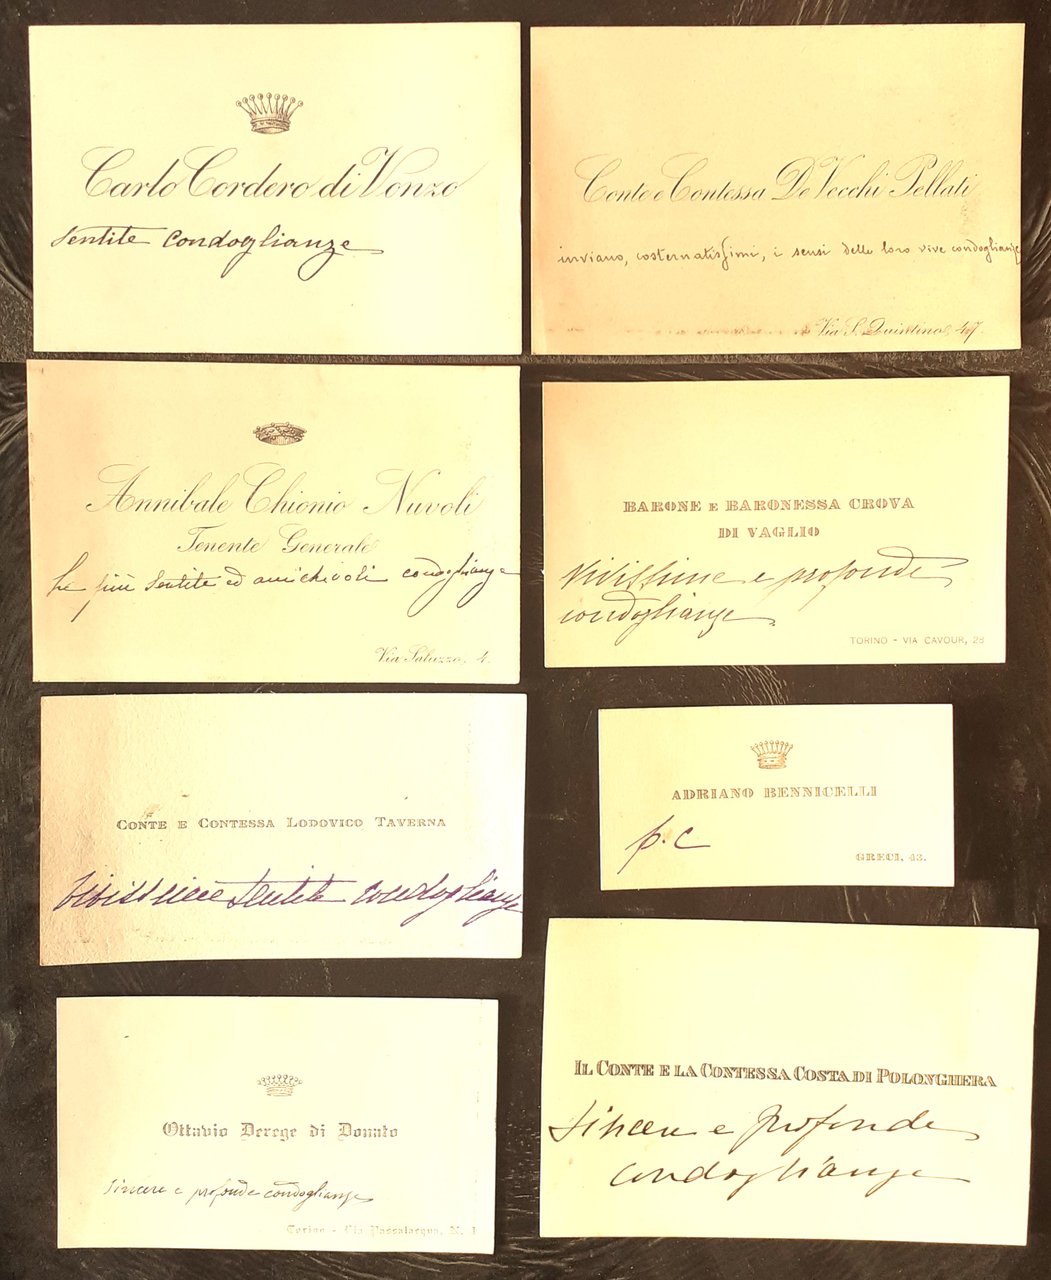 Carlo Cordero di Vonzo
Sentite condoglianze
Conte e Contessa De Vecchi Pellati
inviano, costernatissimi, i sensi delle loro vive condoglianze
Via S. Quintino, 47.
Annibale Chionio Nuvoli
Tenente Generale
Le più sentite ed amichevoli condoglianze
Via Saluzzo, 4.
BARONE E BARONESSA CROVA
DI VAGLIO
Vivissime e profonde
condoglianze
TORINO - VIA CAVOUR, 28
CONTE E CONTESSA LODOVICO TAVERNA
Vivissime sentite condoglianze
ADRIANO BENNICELLI
p. c
GRECI, 43.
Ottavio Derege di Donato
Sincere e profonde condoglianze
Torino - Via Passalacqua, N. 1
IL CONTE E LA CONTESSA COSTA DI POLONGHERA
Sincere e profonde
condoglianze